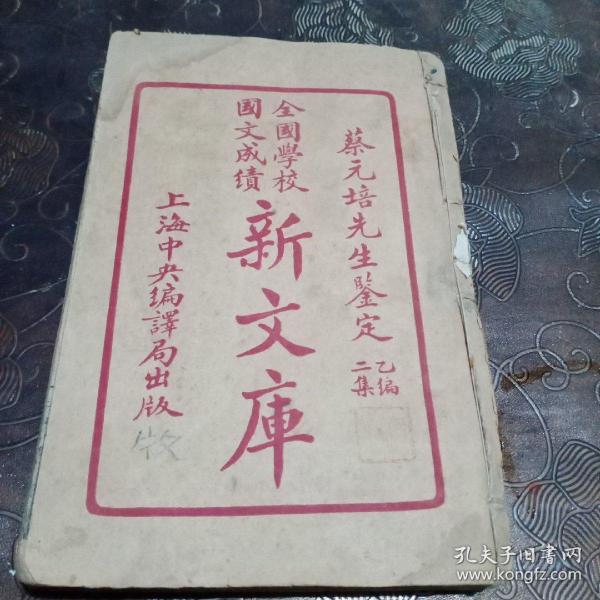 蔡元培先生鑒定
乙编
二集
全國學校
國文成績
新文庫
上海中央編譯局出版
孔夫子旧书网
www.kongfz.com